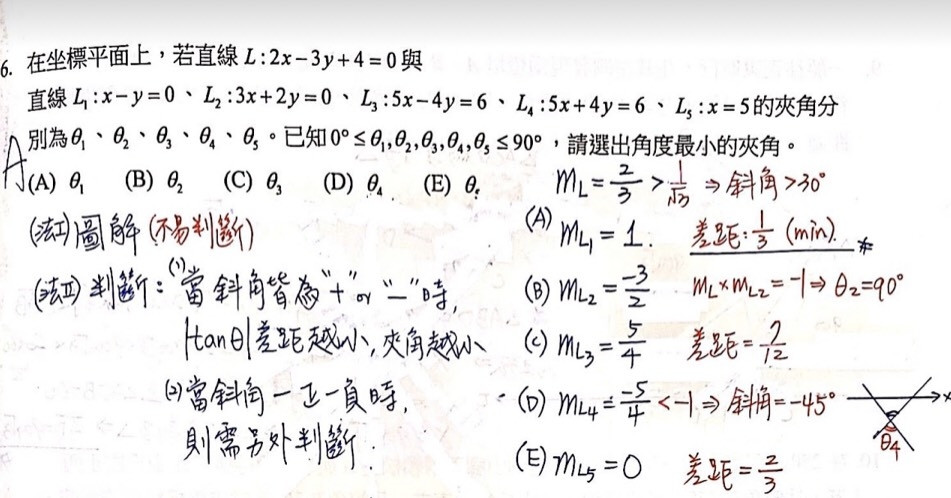 6. 在坐標平面上，若直線 L:2x－3y＋4＝0 與
直線 L₁:x－y＝0、L₂:3x＋2y＝0、L₃:5x－4y＝6、L₄:5x＋4y＝6、L₅:x＝5的夾角分
別為θ₁、θ₂、θ₃、θ₄、θ₅。已知0°≤θ₁,θ₂,θ₃,θ₄,θ₅≤90°，請選出角度最小的夾角。
A
(A) θ₁ (B) θ₂ (C) θ₃ (D) θ₄ (E) θ₅
(法I)圖解(不易判斷)
(法II)判斷：(1)當斜角皆為"+"or"－"時,
|tanθ|差距越小,夾角越小
(2)當斜角一正一負時,
則需另外判斷.
m_L=2/3>1/√3⇒斜角>30°
(A) m_L₁=1. 差距:1/3 (min).*
(B) m_L₂=-3/2 m_L×m_L₂=-1⇒θ₂=90°
(C) m_L₃=5/4 差距=7/12
(D) m_L₄=-5/4<-1⇒斜角=-45° x
θ₄
(E) m_L₅=0 差距=2/3